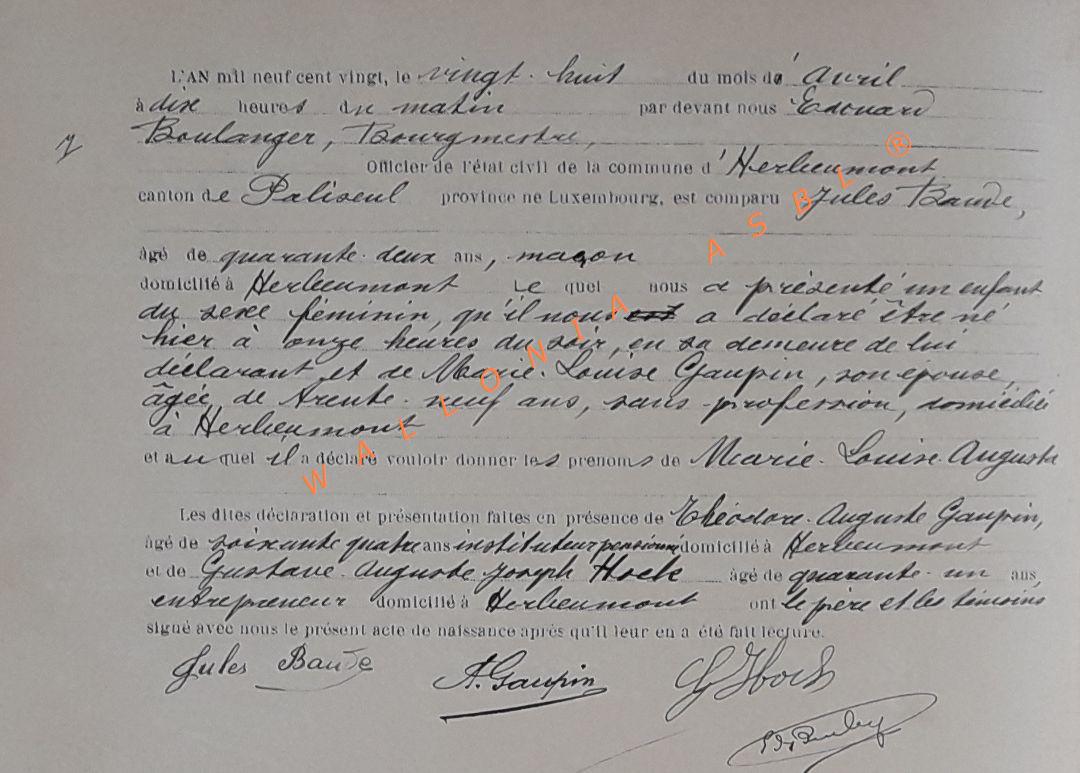 L'AN mil neuf cent vingt, le vingt-huit du mois de Avril
à dix heures du matin par devant nous Edouard
Boulanger, Bourgmestre,
7
Officier de l'état civil de la commune d'Herbeumont
canton de Paliseul province de Luxembourg, est comparu Jules Baude,
âgé de quarante-deux ans, maçon
domicilié à Herbeumont Le quel nous a présenté un enfant
du sexe féminin, qu'il nous est a déclaré être né
hier à onze heures du soir, en sa demeure de lui
déclarant et de Marie-Louise Gaupin, son épouse,
âgée de trente-neuf ans, sans profession, domiciliée
à Herbeumont
et au quel il a déclaré vouloir donner les prenoms de Marie-Louise-Augusta
Les dites déclaration et présentation faites en présence de Théodore-Auguste Gaupin,
âgé de soixante quatre ans instituteur pensionné domicilié à Herbeumont
et de Gustave-Auguste Joseph Hock âgé de quarante-un ans,
entrepreneur domicilié à Herbeumont ont le père et les témoins
signé avec nous le présent acte de naissance après qu'il leur en a été fait lecture.
Jules Baude A. Gaupin G Hock
WALLONIA ASBL ®